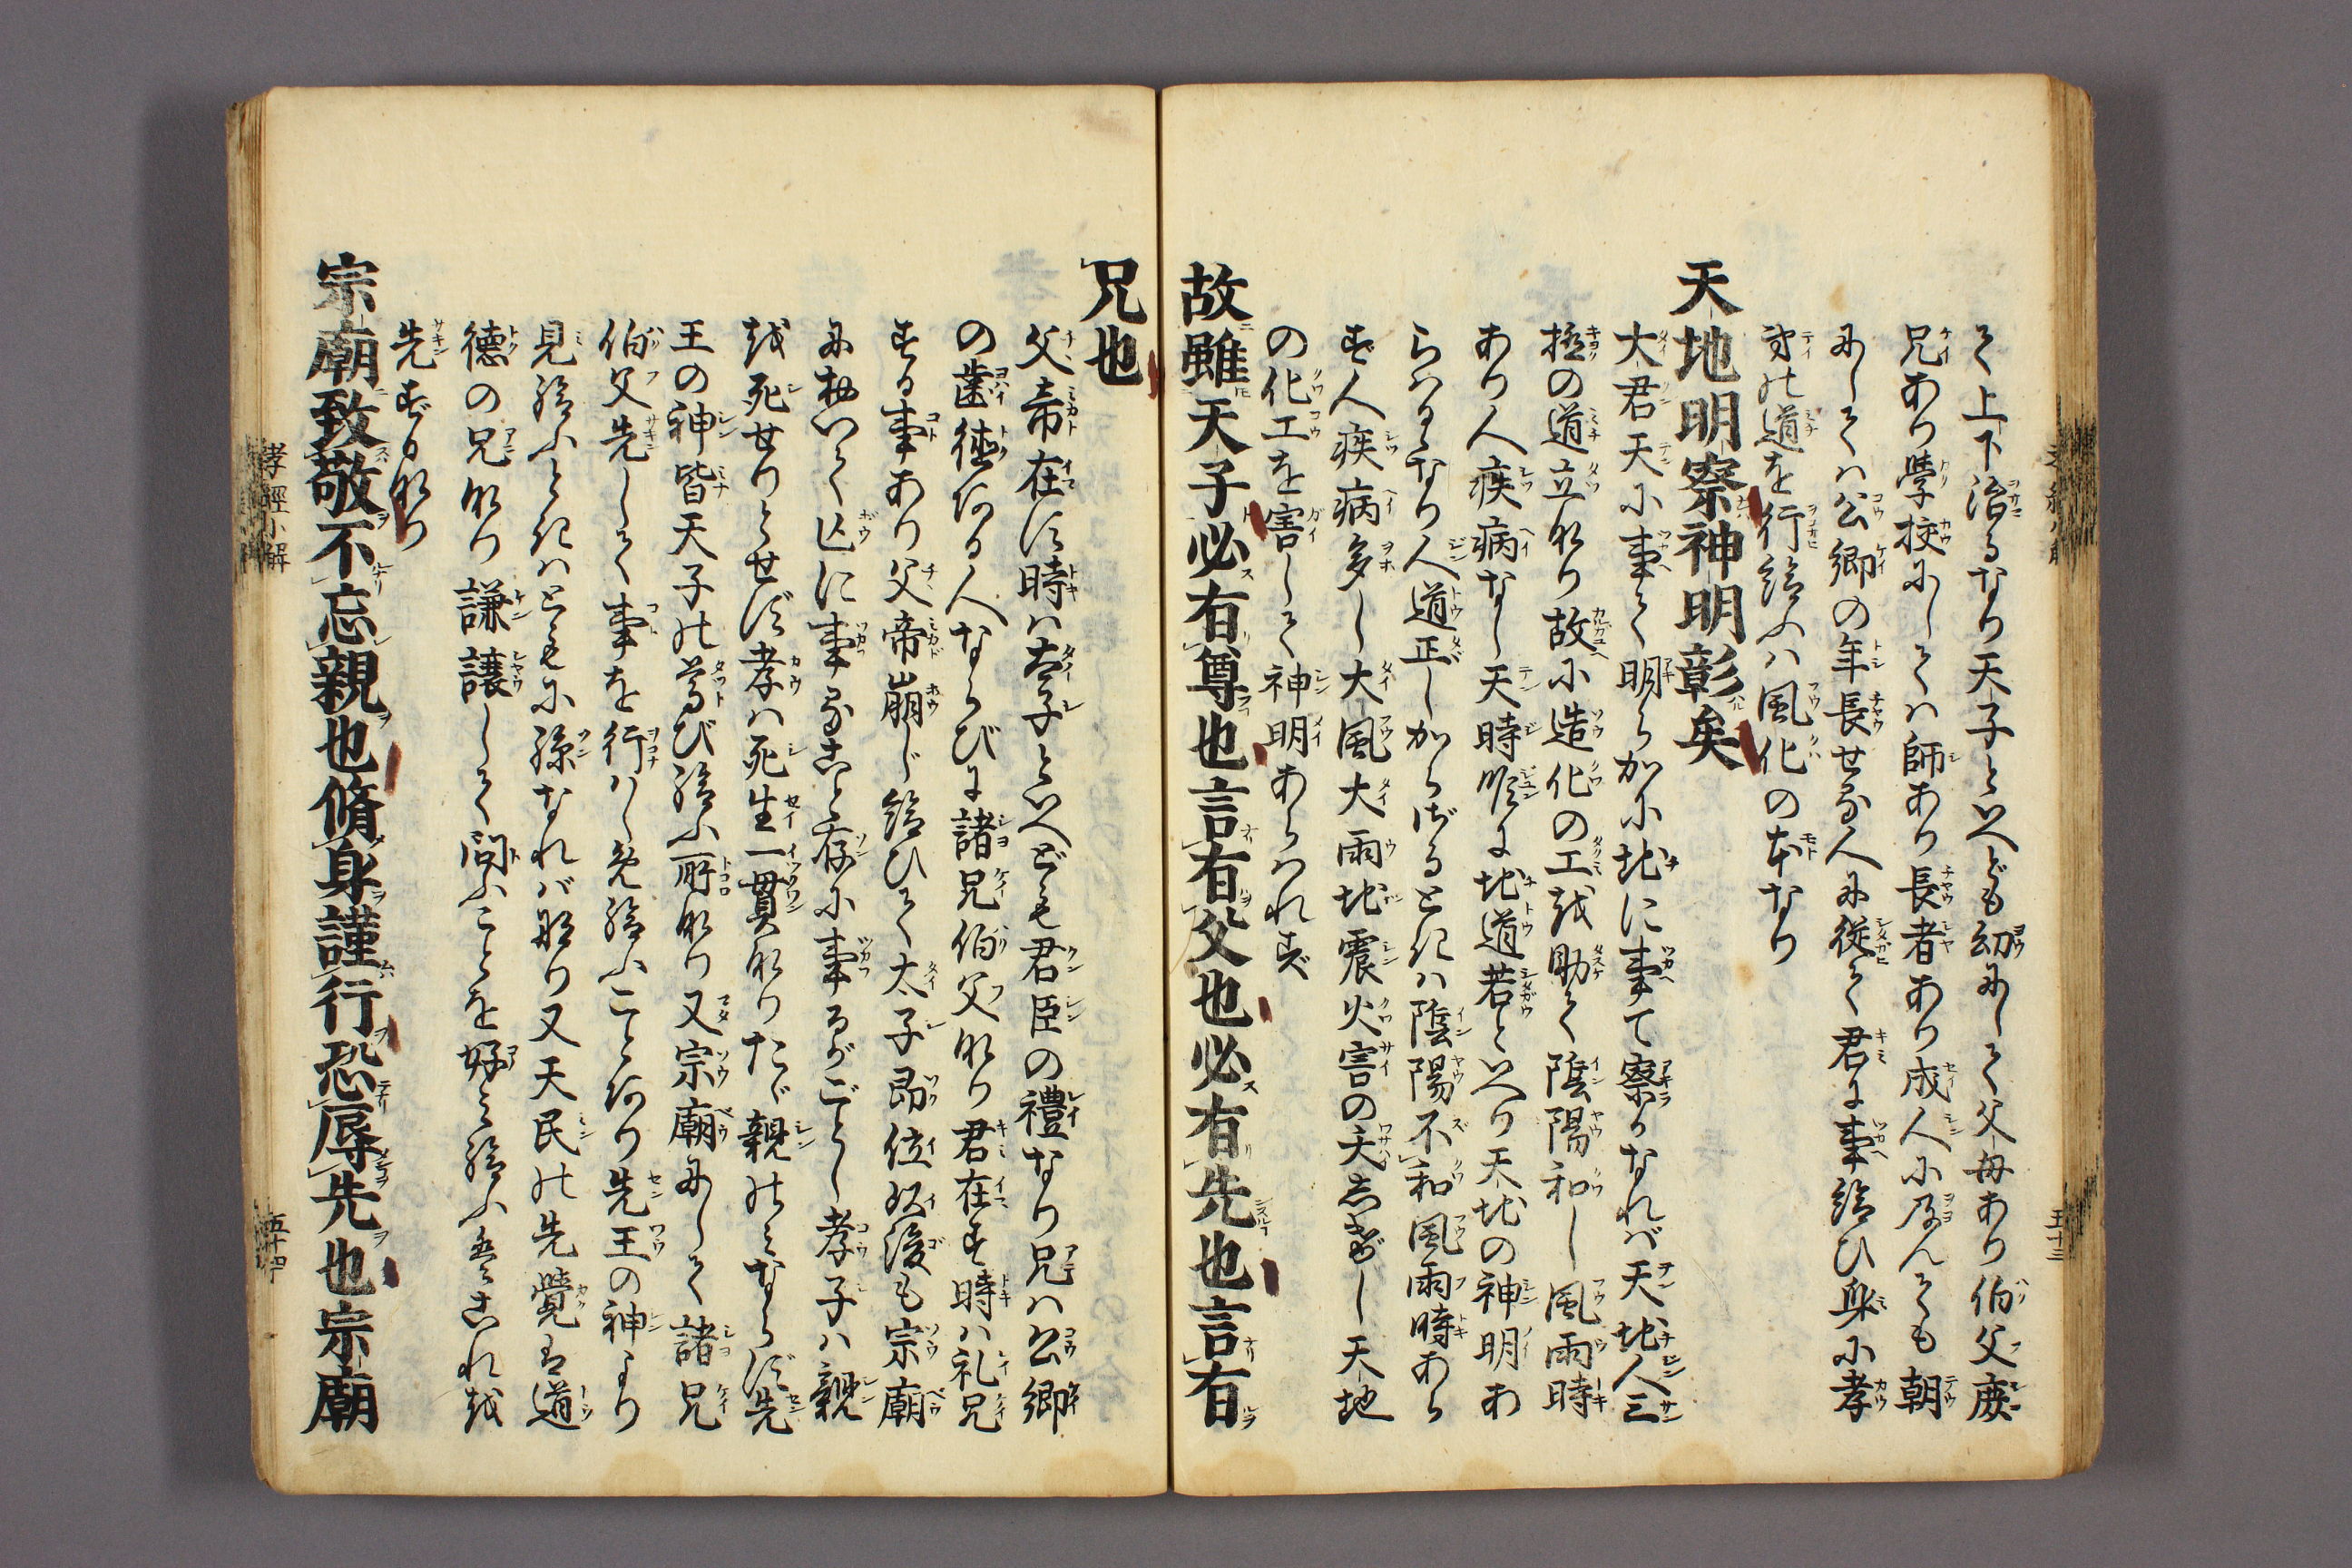 て上下治るなり天子といへども幼にして父母あり伯父庶
兄あり學校にしては師あり長者あり成人に及んても朝
にしては公卿の年長せる人に従て君に事給ひ身に孝
弟の道を行給ふハ風化の本なり
天地明察神明彰矣
大君天に事て明らかに地に事て察かなれバ天地人三
極の道立なり故に造化の工を助て陰陽和し風雨時
あり人疾病なし天時順に地道若といへり天地の神明あ
らハるゝなり人道正しからざるときハ陰陽不和風雨時あら
ず人疾病多し大風大雨地震火害の夭しげし天地
の化工を害して神明あらハれず
故雖天子必有尊也言有父也必有先也言有
兄也
父帝在す時ハ太子といへども君臣の禮なり兄ハ公卿
の歯徳ある人ならびに諸兄伯父なり君在す時ハ礼兄
する事あり父帝崩じ給ひて太子即位以後も宗廟
において亡に事ること存に事るがごとし孝子ハ親
を死せりとせず孝ハ死生一貫なりたゞ親のミならず先
王の神皆天子の尊び給ふ所なり又宗廟にして諸兄
伯父先して事を行ハしめ給ふことあり先王の神より
見給ふときハともに孫なれバ也又天民の先覺は道
徳の兄なり謙讓して問ふことを好ミ給ふ是これを
先ずるなり
宗廟致敬不忘親也脩身謹行恐辱先也宗廟
孝經小解
五十四
五十三